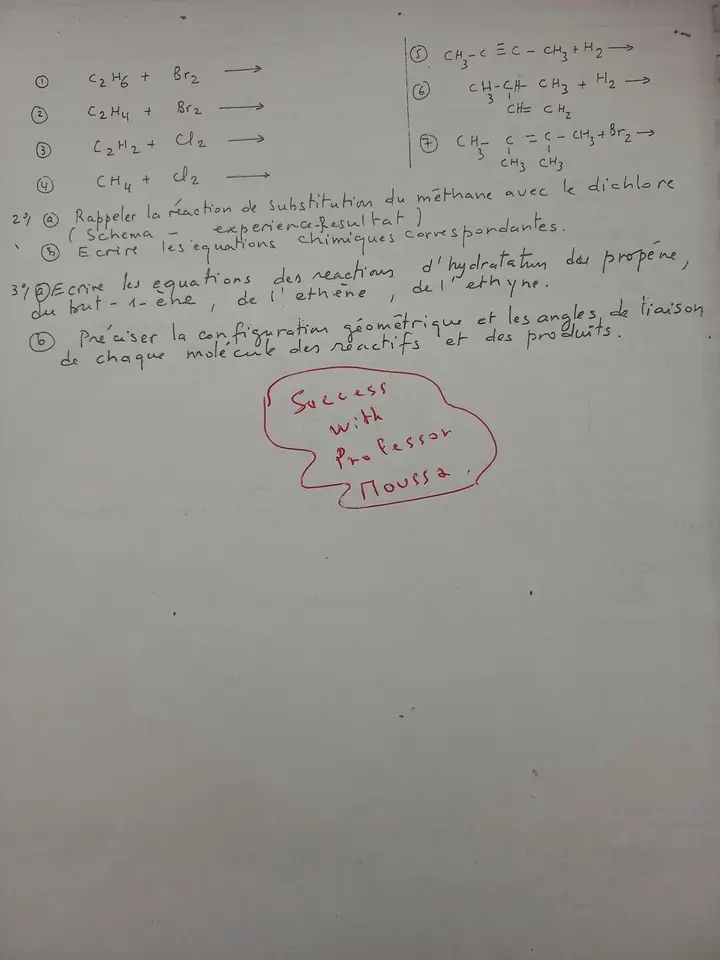 ① C₂H₆ + Br₂ ⟶
② C₂H₄ + Br₂ ⟶
③ C₂H₂ + Cl₂ ⟶
④ CH₄ + Cl₂ ⟶
⑤ CH₃-C ≡ C - CH₃ + H₂ ⟶
⑥ CH₃-CH- CH₃ + H₂ ⟶
CH= CH₂
⑦ CH₃- C = C - CH₃ + Br₂ ⟶
CH₃ CH₃
2°/ ⓐ Rappeler la réaction de substitution du méthane avec le dichlore
( Schema - experience-Resultat )
ⓑ Ecrire les equations chimiques correspondantes.
3°/ ⓐ Ecrire les equations des reactions d'hydratation du propéne,
du but-1-ène, de l'ethène, de l'ethyne.
ⓑ Préciser la configuration géométrique et les angles de liaison
de chaque molécule des réactifs et des produits.
Success
with
Professor
Moussa.